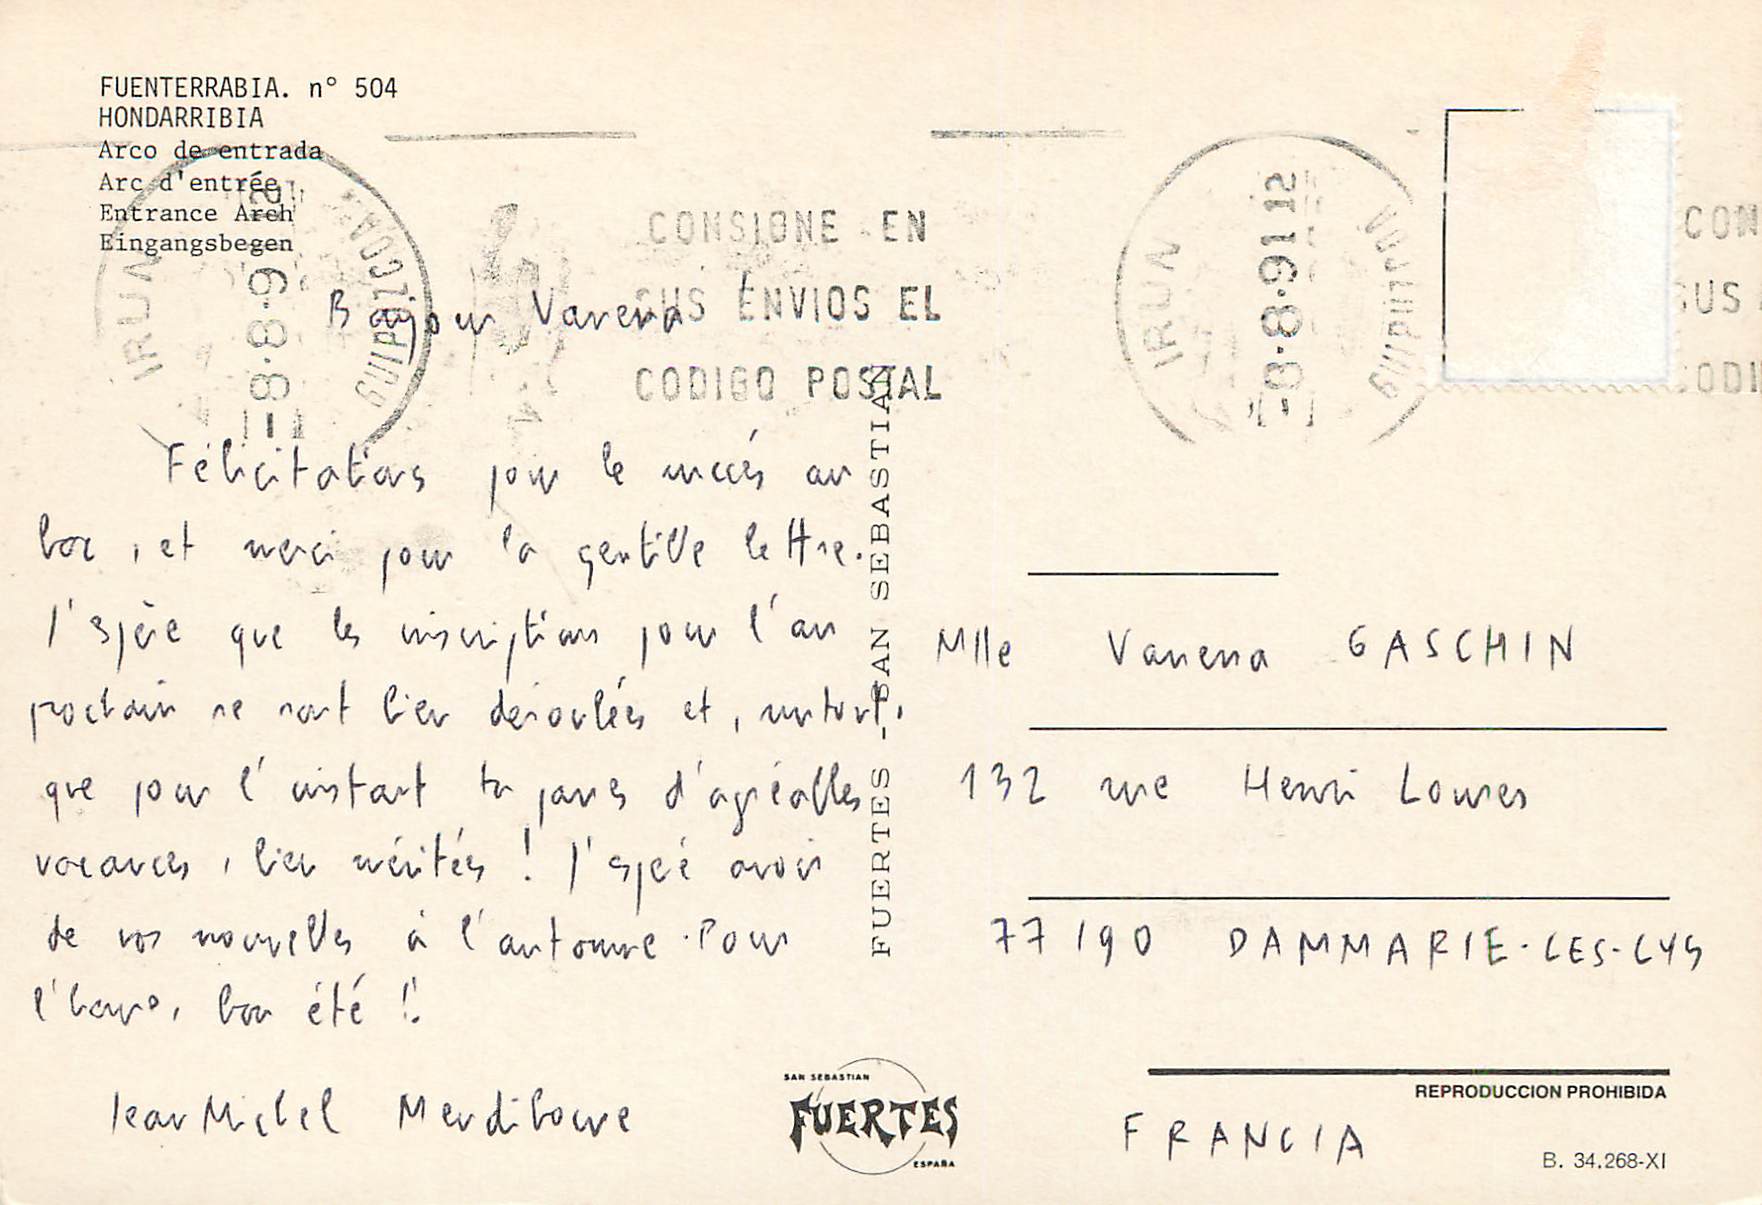 FUENTERRABIA. n° 504
HONDARRIBIA
Arco de entrada
Arc d'entrée
Entrance Arch
Eingangsbegen
IRUN
-8-8-91 12
GUIPUZCOA
CONSIGNE EN
SUS ENVIOS EL
CODIGO POSTAL
IRUN
-8-8-91 12
CON
SUS
CODI
Bonjour Vanessa
Félicitations pour le succès au
bac, et merci pour la gentille lettre.
J'espère que les inscriptions pour l'an
prochain se sont bien déroulées et, surtout,
que pour l'instant tu passes d'agréables
vacances, bien méritées ! J'espère avoir
de vos nouvelles à l'automne. Pour
l'heure, bon été !
Jean Michel Mendiboure
FUERTES - SAN SEBASTIAN
Mlle Vanessa GASCHIN
132 rue Henri
77190 DAMMARIE-LES-LYS
FRANCIA
SAN SEBASTIAN
FUERTES
ESPAÑA
REPRODUCCION PROHIBIDA
B. 34.268-XI